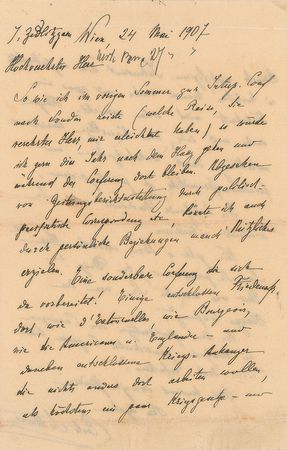 I. Zedlitzgasse Wien 24 Mai 1907
Hochverehrter Herr
So wie ich im vorigen Sommer zur Interp. Conf
nach London reiste (welche Reise, Sie
verehrter Herr, mir erleichtert haben) so würde
ich gern dies Jahr nach dem Haag gehen und
während der Conferenz dort bleiben. Abgesehen
von Zeitungsberichterstattung durch politisch-
pazifistische Correspondenz etc, könnte ich auch
durch persönliche Beziehungen manch' Nützliches
erzielen. Eine sonderbare Conferenz die sich
da vorbereitet! Einige entschlossene Friedens
dort, wie d'Estournelles wie Bourgeois,
wie die Americaner u. Engländer – und
daneben entschlossene Kriegs-Anhänger
die nichts anders dort arbeiten wollen,
als höchstens ein paar Kriegsgesetze – und